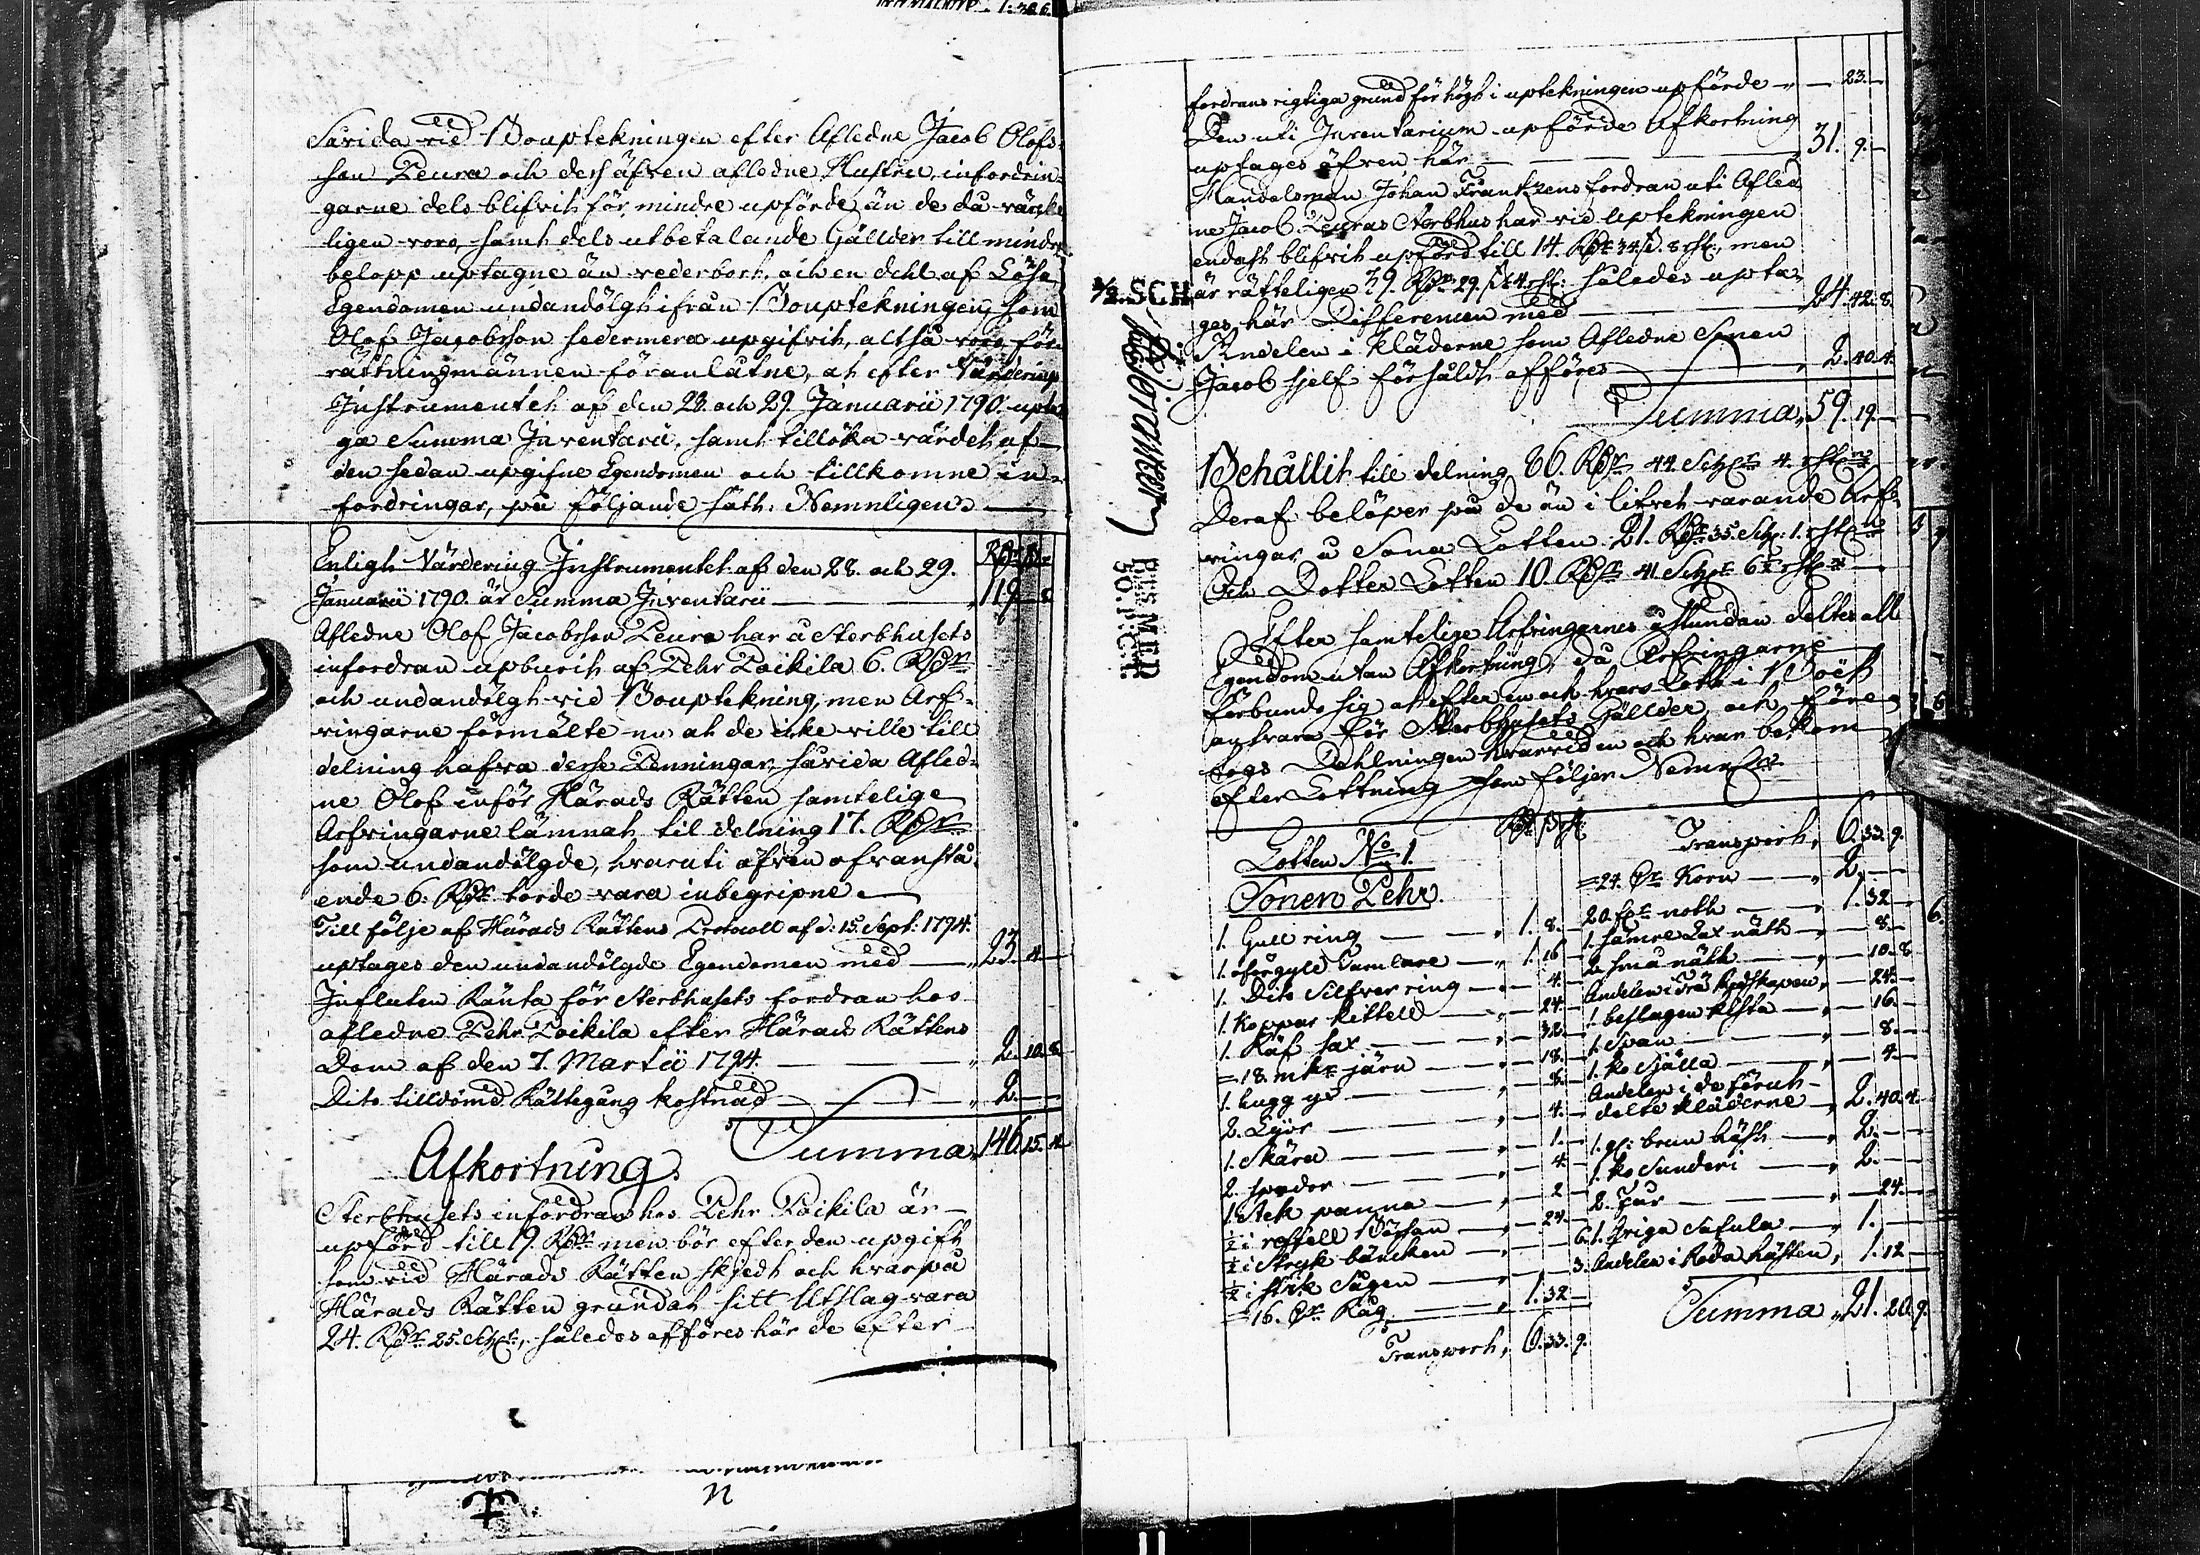 Såvida vid Bouptekningen efter Afledne Jacob Olofs-
son Peura och dess äfven afledne Hustru, infordrin-
garne dels blifvit för mindre upförde, än de då värcke-
ligen voro, samt dels utbetalande Gällder till mindre
belopp uptagne än vederbort, och en dehl af Lösa
Egendomen undandölgt ifrån Bouptekningen, som
Olof Jacobsson sedermera upgifvit, altså voro för-
rättningsmännen föranlåtne, at efter Värderings
Instrumentet af den 28. och 29. Januarii 1790. upta-
ga Summa Inventarii, samt tillöka värdet af
den sedan upgifne Egendomen och tillkomne in-
fordringar, på följande sätt. Nemnligen.
Enligt Värdering Instrumentet af den 28. och 29.
Januarii 1790. är Summa Inventarii — 119. — 8.
Afledne Olof Jacobsson Peura har å Sterbhusets
infordran upburit af Pehr Poikila 6. Rdr
och undandölgt vid Bouptekning, men Arf-
ringarne förmälte nu at de icke ville till
delning hafva desse Penningar, såvida Afled-
ne Olof inför Härads Rätten samtelige
Arfvingarne lämnat til delning 17. Rdr
som undandölgde, hvaruti äfven ofvanstå-
ende 6. Rdr torde vara inbegripne.
Till följe af Härads Rättens Protocoll af d. 15. Sept: 1794.
uptages den undandölgde Egendomen med — 23. 4. —
Influten Ränta för Sterbhusets fordran hos
afledne Pehr Poikila efter Härads Rättens
Dom af den 7. Martii 1794. — 2. 10. 8.
Dito tilldömd Rättegång kostnad — 2. —
Summa 146. 15. 4.
Afkortning.
Sterbhusets infordran hos Pehr Poikila är
upförd till 19. Rdr men bör efter den upgift
som vid Härads Rätten skjedt och hvarpå
Härads Rätten grundat sitt Utslag vara
24. Rdr 25. Sch, således afföres här de efter
fordrans rigtiga grund för högt i uptekningen upförde — 23. —
Den uti Inventarium upförde Afkortning
uptages äfven här — 31. 9. —
Handelsman Johan Frantzens fordran uti Afled-
ne Jacob Peuras Sterbhus har vid uptekningen
endast blifvit upförd till 14. Rdr 34 s. 8 rst, men
är rätteligen 39. Rdr 29. s. 4 rst: således upta-
ges här Differencen med — 24. 42. 8.
Andelen i Kläderne som Afledne Sonen
Jacob sjelf försåldt afföres — 2. 40. 4.
Summa, 59. 19. —
Behållit till delning 86. Rdr 44. Sch 4. rst
Deraf belöper på de än i lifvet varande Arf-
vingar å Sona Lotten 21. Rdr 35. Sch. 1. rst
Och Dotter Lotten 10. Rdr 41. Sch 6½ rst
Efter samtelige Arfvingarnes åstundan deltes all
Egendom utan Afkortning, då Arfvingarne
förbundo sig at efter en och hvars Lott i Boet
ansvara för Sterbhusets Gällder, och före-
togs Dehlningen hvarvid en och hvar bekom
efter Lottning som följer Nemnl
Lotten No 1.
Sonen Pehr.
1. Gull ring — 1. 8. —
1. förgyld — 1. 16 —
1. Dito Silfver ring — 4. —
1. Koppar kittell — 24. —
1. Räf sax — 32. —
18. mkr järn — 18. —
1. hugg yx — 8. —
2. Lijor — 4. —
1. Skära — 1. —
2. spador — 4. —
1. Stek panna — 2 —
½ i reffell Bössan — 24. —
½ i Stryk bäncken — 6.
½ i stick Sågen — 3.
16. Råg — 1. 32 —
Transport, 6. 33. 9.
Transport, 6. 33. 9.
24. Korn — 2. —
20. noth — 1. 32 —
1. Lax nät — 8. —
2. små nät — 10. 8
Andelen i Trä Redskapen, — 24. —
1. beslagen kista — 16. —
1. Span — 8. —
1. ko Själla — 4. —
Andelen i de föruth
delte kläderne — 2. 40. 4.
1. brun häst — 2. —
1. ko Sundari — 2. —
2. Får — 24. —
1. Sufula — 1. —
Andelen i Röda hästen, 1. 12 —
Summa, 21. 20. 9.